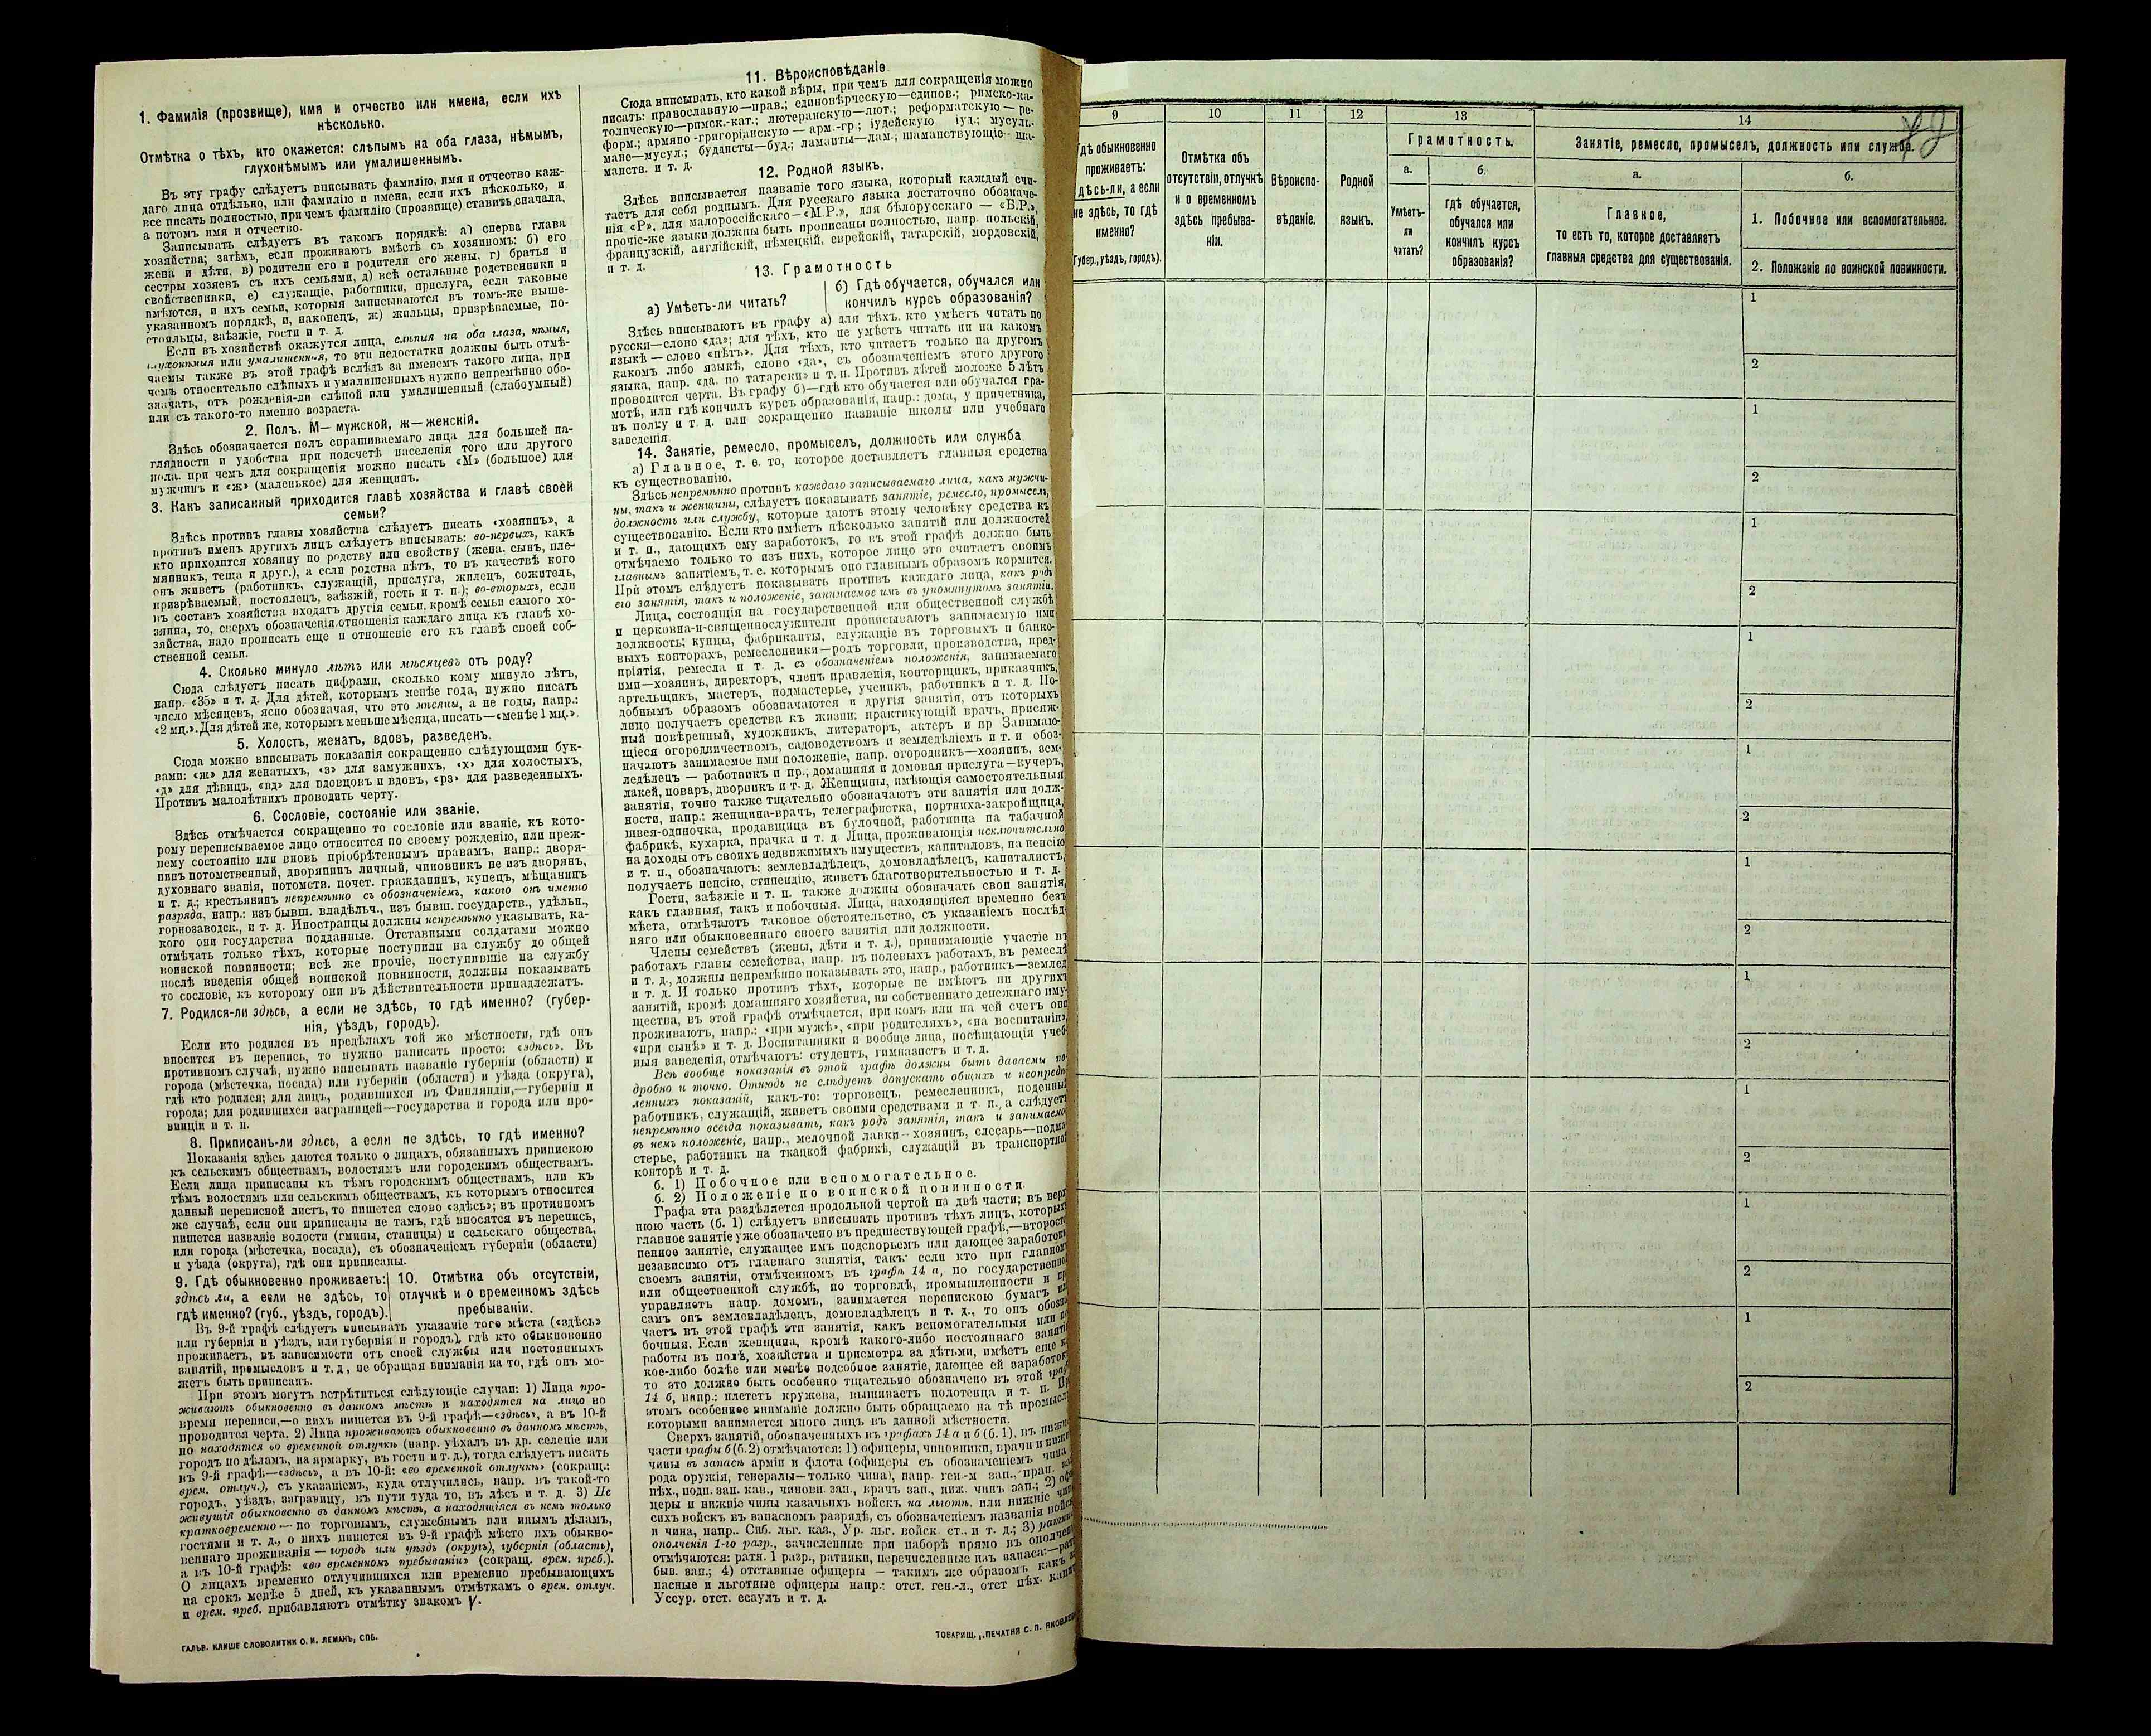 1. Фамилія (прозвище), имя и отчество или имена, если ихъ
нѣсколько.
Отмѣтка о тѣхъ, кто окажется: слѣпымъ на оба глаза, нѣмымъ,
глухонѣмымъ или умалишеннымъ.
Въ эту графу слѣдуетъ вписывать фамилію, имя и отчество каж-
даго лица отдѣльно, или фамилію и имена, если ихъ нѣсколько, и
все писать полностью, при чемъ фамилію (прозвище) ставить сначала,
а потомъ имя и отчество.
Записывать слѣдуетъ въ такомъ порядкѣ: а) сперва глава
хозяйства; затѣмъ, если проживаютъ вмѣстѣ съ хозяиномъ: б) его
жена и дѣти, в) родители его и родители его жены, г) братья и
сестры хозяевъ съ ихъ семьями, д) всѣ остальные родственники и
свойственники, е) служащіе, работники, прислуга, если таковые
имѣются, и ихъ семьи, которыя записываются въ томъ-же выше-
указанномъ порядкѣ, и, наконецъ, ж) жильцы, призрѣваемые, по-
стояльцы, заѣзжіе, гости и т. д.
Если въ хозяйствѣ окажутся лица, слѣпыя на оба глаза, нѣмыя,
глухонѣмыя или умалишенныя, то эти недостатки должны быть отмѣ-
чаемы также въ этой графѣ вслѣдъ за именемъ такого лица, при
чемъ относительно слѣпыхъ и умалишенныхъ нужно непремѣнно обо-
значать, отъ рожденія-ли слѣпой или умалишенный (слабоумный)
или съ такого-то именно возраста.
2. Полъ. М— мужской, ж— женскій.
Здѣсь обозначается полъ спрашиваемаго лица для большей на-
глядности и удобства при подсчетѣ населенія того или другого
пола. при чемъ для сокращенія можно писать «М» (большое) для
мужчинъ и «ж» (маленькое) для женщинъ.
3. Какъ записанный приходится главѣ хозяйства и главѣ своей
семьи?
Здѣсь противъ главы хозяйства слѣдуетъ писать «хозяинъ», а
противъ именъ другихъ лицъ слѣдуетъ вписывать: во-первыхъ, какъ
кто приходится хозяину по родству или свойству (жена, сынъ, пле-
мянникъ, теща и друг.), а если родства нѣтъ, то въ качествѣ кого
онъ живетъ (работникъ, служащій, прислуга, жилецъ, сожитель,
призрѣваемый, постоялецъ, заѣзжій, гость и т. п.); во-вторыхъ, если
въ составъ хозяйства входятъ другія семьи, кромѣ семьи самого хо-
зяина, то, сверхъ обозначенія отношенія каждаго лица къ главѣ хо-
зяйства, надо прописать еще и отношеніе его къ главѣ своей соб-
ственной семьи.
4. Сколько минуло лѣтъ или мѣсяцевъ отъ роду?
Сюда слѣдуетъ писать цифрами, сколько кому минуло лѣтъ,
напр. «35» и т. д. Для дѣтей, которымъ менѣе года, нужно писать
число мѣсяцевъ, ясно обозначая, что это мѣсяцы, а не годы, напр.:
«2 мц.». Для дѣтей же, которымъ меньше мѣсяца, писать—«менѣе 1 мц.».
5. Холостъ, женатъ, вдовъ, разведенъ.
Сюда можно вписывать показанія сокращенно слѣдующими бук-
вами: «ж» для женатыхъ, «з» для замужнихъ, «х» для холостыхъ,
«д» для дѣвицъ, «вд» для вдовцовъ и вдовъ, «рз» для разведенныхъ.
Противъ малолѣтнихъ проводить черту.
6. Сословіе, состояніе или званіе.
Здѣсь отмѣчается сокращенно то сословіе или званіе, къ кото-
рому переписываемое лицо относится по своему рожденію, или преж-
нему состоянію или вновь пріобрѣтеннымъ правамъ, напр.: дворя-
нинъ потомственный, дворянинъ личный, чиновникъ не изъ дворянъ,
духовнаго званія, потомств. почет. гражданинъ, купецъ, мѣщанинъ
и т. д.; крестьянинъ непремѣнно съ обозначеніемъ, какого онъ именно
разряда, напр.: изъ бывш. владѣльч., изъ бывш. государств., удѣльн.,
горнозаводск., и т. д. Иностранцы должны непремѣнно указывать, ка-
кого они государства подданные. Отставными солдатами можно
отмѣчать только тѣхъ, которые поступили на службу до общей
воинской повинности; всѣ же прочіе, поступившіе на службу
послѣ введенія общей воинской повинности, должны показывать
то сословіе, къ которому они въ дѣйствительности принадлежатъ.
7. Родился-ли здѣсь, а если не здѣсь, то гдѣ именно? (губер-
нія, уѣздъ, городъ).
Если кто родился въ предѣлахъ той же мѣстности, гдѣ онъ
вносится въ перепись, то нужно написать просто: «здѣсь». Въ
противномъ случаѣ, нужно вписывать названіе губерніи (области) и
города (мѣстечка, посада) или губерніи (области) и уѣзда (округа),
гдѣ кто родился; для лицъ, родившихся въ Финляндіи,—губерніи и
города; для родившихся заграницей—государства и города или про-
винціи и т. п.
8. Приписанъ-ли здѣсь, а если не здѣсь, то гдѣ именно?
Показанія здѣсь даются только о лицахъ, обязанныхъ припискою
къ сельскимъ обществамъ, волостямъ или городскимъ обществамъ.
Если лица приписаны къ тѣмъ городскимъ обществамъ, или къ
тѣмъ волостямъ или сельскимъ обществамъ, къ которымъ относится
данный переписной листъ, то пишется слово «здѣсь»; въ противномъ
же случаѣ, если они приписаны не тамъ, гдѣ вносятся въ перепись,
пишется названіе волости (гмины, станицы) и сельскаго общества,
или города (мѣстечка, посада), съ обозначеніемъ губерніи (области)
и уѣзда (округа), гдѣ они приписаны.
9. Гдѣ обыкновенно проживаетъ:
здѣсь ли, а если не здѣсь, то
гдѣ именно? (губ., уѣздъ, городъ).
10. Отмѣтка объ отсутствіи,
отлучкѣ и о временномъ здѣсь
пребываніи.
Въ 9-й графѣ слѣдуетъ вписывать указаніе того мѣста («здѣсь»
или губернія и уѣздъ, или губернія и городъ), гдѣ кто обыкновенно
проживаетъ, въ зависимости отъ своей службы или постоянныхъ
занятій, промысловъ и т. д, не обращая вниманія на то, гдѣ онъ мо-
жетъ быть приписанъ.
При этомъ могутъ встрѣтиться слѣдующіе случаи: 1) Лица про-
живаютъ обыкновенно въ данномъ мѣстѣ и находятся на лицо во
время переписи,—о нихъ пишется въ 9-й графѣ—«здѣсь», а въ 10-й
проводится черта. 2) Лица проживаютъ обыкновенно въ данномъ мѣстѣ,
но находятся во временной отлучкѣ (напр. уѣхалъ въ др. селеніе или
городъ по дѣламъ, на ярмарку, въ гости и т. д.), тогда слѣдуетъ писать
въ 9-й графѣ—«здѣсь», а въ 10-й: «во временной отлучкѣ» (сокращ.:
врем. отлуч.), съ указаніемъ, куда отлучились, напр. въ такой-то
городъ, уѣздъ, заграницу, въ пути туда то, въ лѣсъ и т. д. 3) Не
живущія обыкновенно въ данномъ мѣстѣ, а находящіяся въ немъ только
кратковременно — по торговымъ, служебнымъ или инымъ дѣламъ,
гостями и т. д., о нихъ пишется въ 9-й графѣ мѣсто ихъ обыкно-
веннаго проживанія — городъ или уѣздъ (округъ), губернія (область),
а въ 10-й графѣ: «во временномъ пребываніи» (сокращ. врем. преб.).
О лицахъ временно отлучившихся или временно пребывающихъ
на срокъ менѣе 5 дней, къ указаннымъ отмѣткамъ о врем. отлуч.
и врем. преб. прибавляютъ отмѣтку знакомъ V.
ГАЛЬВ. КЛИШЕ СЛОВОЛИТНИ О. И. ЛЕМАНЪ, СПБ.
11. Вѣроисповѣданіе
Сюда вписывать, кто какой вѣры, при чемъ для сокращенія можно
писать: православную—прав.; единовѣрческую—единов.; римско-ка-
толическую—римск.-кат.; лютеранскую—лют.; реформатскую — ре-
форм.; армяно-григоріанскую — арм.-гр; іудейскую іуд.; мусуль-
мане—мусул.; буддисты—буд.; ламаиты—лам.; шаманствующіе— ша-
манств. и т. д.
12. Родной языкъ.
Здѣсь вписывается названіе того языка, который каждый счи-
таетъ для себя роднымъ. Для русскаго языка достаточно обозначе-
нія «Р», для малороссійскаго—«М.Р.», для бѣлорусскаго — «Б.Р.»,
прочіе-же языки должны быть прописаны полностью, напр. польскій,
французскій, англійскій, нѣмецкій, еврейскій, татарскій, мордовскій,
и т. д.
13. Грамотность
а) Умѣетъ-ли читать?
б) Гдѣ обучается, обучался или
кончилъ курсъ образованія?
Здѣсь вписываютъ въ графу а) для тѣхъ, кто умѣетъ читать по
русски—слово «да»; для тѣхъ, кто не умѣетъ читать ни на какомъ
языкѣ — слово «нѣтъ». Для тѣхъ, кто читаетъ только на другомъ
какомъ либо языкѣ, слово «да», съ обозначеніемъ этого другого
языка, напр. «да. по татарски» и т. п. Противъ дѣтей моложе 5 лѣтъ
проводится черта. Въ графу б)—гдѣ кто обучается или обучался гра-
мотѣ, или гдѣ кончилъ курсъ образованія, напр.: дома, у причетника,
въ полку и т. д. или сокращенно названіе школы или учебнаго
заведенія
14. Занятіе, ремесло, промыселъ, должность или служба
а) Главное, т. е. то, которое доставляетъ главныя средства
къ существованію.
Здѣсь непремѣнно противъ каждаго записываемаго лица, какъ мужчи-
ны, такъ и женщины, слѣдуетъ показывать занятіе, ремесло, промыселъ,
должность или службу, которые даютъ этому человѣку средства къ
существованію. Если кто имѣетъ нѣсколько занятій или должностей
и т. п., дающихъ ему заработокъ, то въ этой графѣ должно быть
отмѣчаемо только то изъ нихъ, которое лицо это считаетъ своимъ
главнымъ занятіемъ, т. е. которымъ оно главнымъ образомъ кормится.
При этомъ слѣдуетъ показывать противъ каждаго лица, какъ родъ
его занятія, такъ и положеніе, занимаемое имъ въ упомянутомъ занятіи.
Лица, состоящія на государственной или общественной службѣ
и церковно-и-священнослужители прописываютъ занимаемую ими
должность; купцы, фабриканты, служащіе въ торговыхъ и банко-
выхъ конторахъ, ремесленники—родъ торговли, производства, пред-
пріятія, ремесла и т. д. съ обозначеніемъ положенія, занимаемаго
ими—хозяинъ, директоръ, членъ правленія, конторщикъ, приказчикъ,
артельщикъ, мастеръ, подмастерье, ученикъ, работникъ и т. д. По-
добнымъ образомъ обозначаются и другія занятія, отъ которыхъ
лицо получаетъ средства къ жизни: практикующій врачъ, присяж-
ный повѣренный, художникъ, литераторъ, актеръ и пр Занимаю-
щіеся огородничествомъ, садоводствомъ и земледѣліемъ и т. п обоз-
начаютъ занимаемое ими положеніе, напр. огородникъ—хозяинъ, зем-
ледѣлецъ — работникъ и пр.; домашняя и домовая прислуга—кучеръ,
лакей, поваръ, дворникъ и т. д. Женщины, имѣющія самостоятельныя
занятія, точно также тщательно обозначаютъ эти занятія или долж-
ности, напр.: женщина-врачъ, телеграфистка, портниха-закройщица,
швея-одиночка, продавщица въ булочной, работница на табачной
фабрикѣ, кухарка, прачка и т. д. Лица, проживающія исключительно
на доходы отъ своихъ недвижимыхъ имуществъ, капиталовъ, на пенсію
и т. п., обозначаютъ: землевладѣлецъ, домовладѣлецъ, капиталистъ,
получаетъ пенсію, стипендію, живетъ благотворительностью и т. д.
Гости, заѣзжіе и т. п. также должны обозначать свои занятія,
какъ главныя, такъ и побочныя. Лица, находящіяся временно безъ
мѣста, отмѣчаютъ таковое обстоятельство, съ указаніемъ послѣд-
няго или обыкновеннаго своего занятія или должности.
Члены семействъ (жены, дѣти и т. д.), принимающіе участіе въ
работахъ главы семейства, напр. въ полевыхъ работахъ, въ ремеслѣ
и т. д., должны непремѣнно показывать это, напр., работникъ—землед
и т. д. И только противъ тѣхъ, которые не имѣютъ ни другихъ
занятій, кромѣ домашняго хозяйства, ни собственнаго денежнаго иму-
щества, въ этой графѣ отмѣчается, при комъ или на чей счетъ они
проживаютъ, напр.: «при мужѣ», «при родителяхъ», «на воспитаніи»,
«при сынѣ» и т. д. Воспитанники и вообще лица, посѣщающія учеб-
ныя заведенія, отмѣчаютъ: студентъ, гимназистъ и т. д.
Всѣ вообще показанія въ этой графѣ должны быть даваемы по-
дробно и точно. Отнюдь не слѣдуетъ допускать общихъ и неопредѣ-
ленныхъ показаній, какъ-то: торговецъ, ремесленникъ, поденный
работникъ, служащій, живетъ своими средствами и т п., а слѣдуетъ
непремѣнно всегда показывать, какъ родъ занятія, такъ и занимаемое
въ немъ положеніе, напр., мелочной лавки—хозяинъ, слесарь—подма-
стерье, работникъ на ткацкой фабрикѣ, служащій въ транспортной
конторѣ и т. д.
б. 1) Побочное или вспомогательное.
б. 2) Положеніе по воинской повинности.
Графа эта раздѣляется продольной чертой на двѣ части; въ верх-
нюю часть (б. 1) слѣдуетъ вписывать противъ тѣхъ лицъ, которыхъ
главное занятіе уже обозначено въ предшествующей графѣ,—второсте-
пенное занятіе, служащее имъ подспорьемъ или дающее заработокъ
независимо отъ главнаго занятія, такъ: если кто при главномъ
своемъ занятіи, отмѣченномъ въ графѣ 14 а, по государственной
или общественной службѣ, по торговлѣ, промышленности и пр
управляетъ напр. домомъ, занимается перепискою бумагъ или
самъ онъ землевладѣлецъ, домовладѣлецъ и т. д., то онъ обозна-
чаетъ въ этой графѣ эти занятія, какъ вспомогательныя или по-
бочныя. Если женщина, кромѣ какого-либо постояннаго занятія
работы въ полѣ, хозяйства и присмотра за дѣтьми, имѣетъ еще ка-
кое-либо болѣе или менѣе подсобное занятіе, дающее ей заработокъ
то это должно быть особенно тщательно обозначено въ этой графѣ
14 б, напр.: плететъ кружева, вышиваетъ полотенца и т. п. При
этомъ особенное вниманіе должно быть обращаемо на тѣ промыслы
которыми занимается много лицъ въ данной мѣстности.
Сверхъ занятій, обозначенныхъ въ графахъ 14 а и б (б. 1), въ нижней
части графы б (б. 2) отмѣчаются: 1) офицеры, чиновники, врачи и нижн
чины въ запасѣ арміи и флота (офицеры съ обозначеніемъ чина
рода оружія, генералы—только чина), напр. ген.-м зап., прап. зап
пѣх., подп. зап. кав., чиновн. зап., врачъ зап., ниж. чинъ зап.; 2) офи-
церы и нижніе чины казачьихъ войскъ на льготѣ, или нижніе чины
сихъ войскъ въ запасномъ разрядѣ, съ обозначеніемъ названія войска
и чина, напр.. Сиб. льг. каз., Ур. льг. войск. ст.. и т. д.; 3) ратники
ополченія 1-го разр., зачисленные при наборѣ прямо въ ополченіе
отмѣчаются: ратн. 1 разр., ратники, перечисленные изъ запаса:—ратн
быв. зап.; 4) отставные офицеры — такимъ же образомъ какъ за-
пасные и льготные офицеры напр.: отст. ген.-л., отст пѣх. капит
Уссур. отст. есаулъ и т. д.
ТОВАРИЩ. „ПЕЧАТНЯ С. П. ЯКОВЛЕВА
9
Гдѣ обыкновенно
проживаетъ:
здѣсь-ли, а если
не здѣсь, то гдѣ
именно?
(Губер., уѣздъ, городъ).
10
Отмѣтка объ
отсутствіи, отлучкѣ
и о временномъ
здѣсь пребыва-
ніи.
11
Вѣроиспо-
вѣданіе.
12
Родной
языкъ.
13
Грамотность.
а.
Умѣетъ-
ли
читать?
б.
гдѣ обучается,
обучался или
кончилъ курсъ
образованія?
14
Занятіе, ремесло, промыселъ, должность или служба.
а.
Главное,
то есть то, которое доставляетъ
главныя средства для существованія.
б.
1. Побочное или вспомогательное.
2. Положеніе по воинской повинности.
1
2
1
2
1
2
1
2
1
2
1
2
1
2
1
2
1
2
1
2